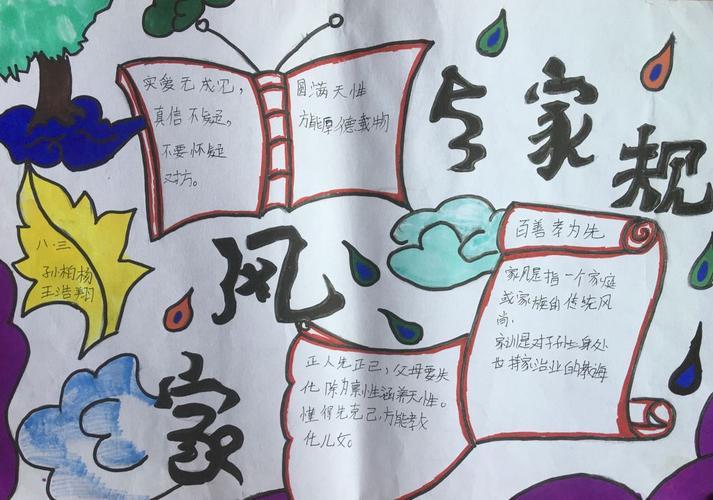 家风与家规
实爱无成见，
真信不疑，
不要怀疑
对方。
圆满天性
方能厚德载物
八.三
孙柏杨
王浩翔
百善孝为先
家风是指一个家庭
或家族的传统风
尚.
家训是对子孙立身处
世持家治业的教诲
正人先正己，父母要先
化除禀性涵养天性。
懂得先克己，方能教
化儿女。